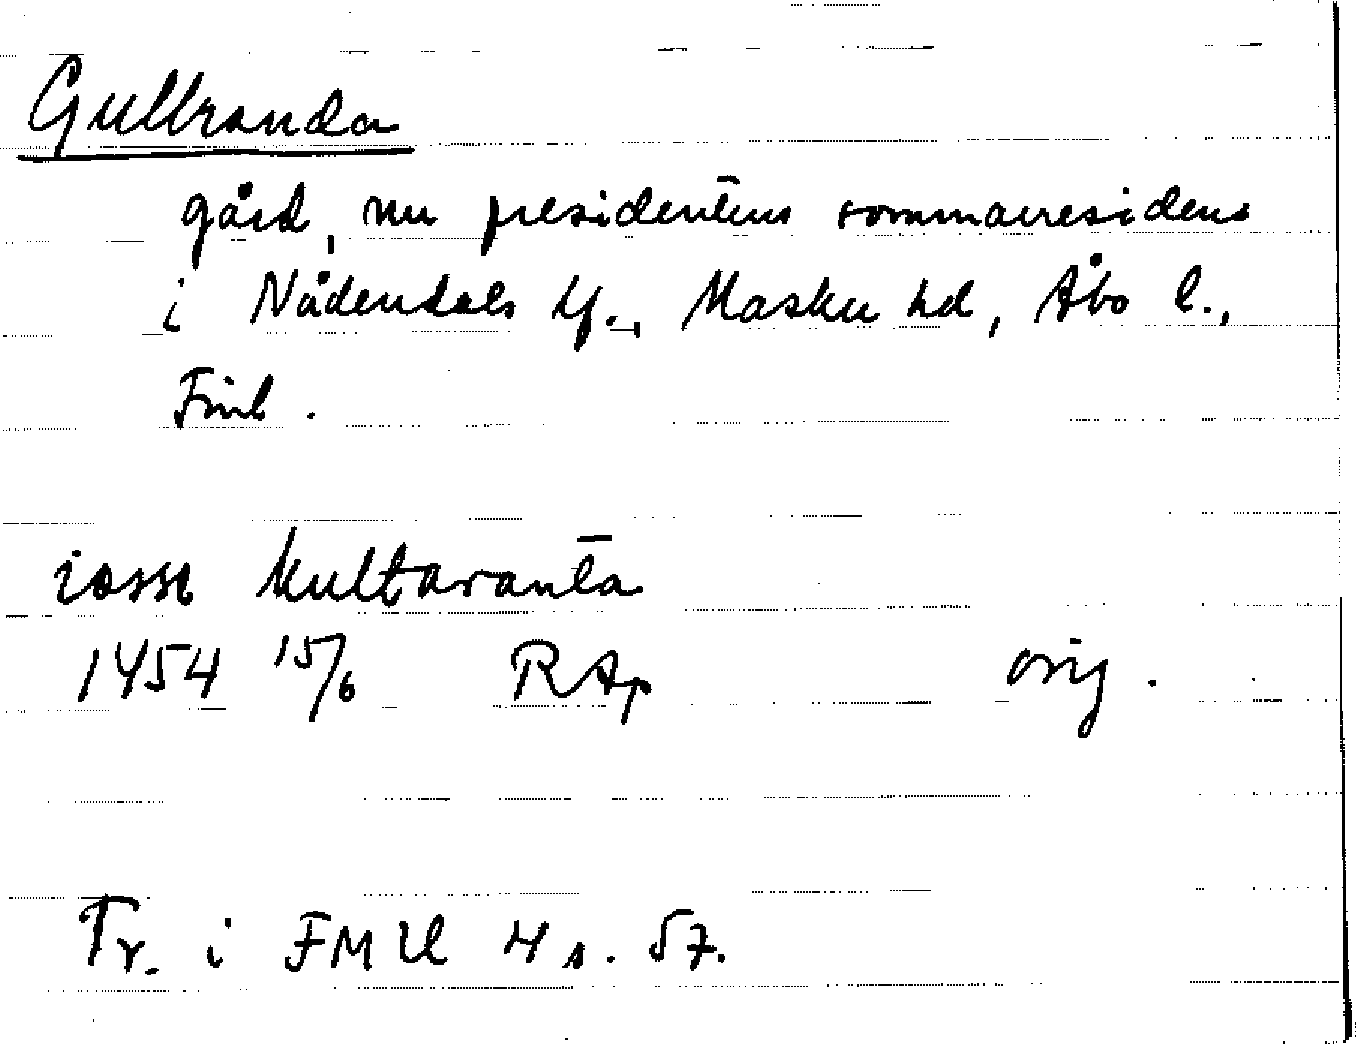 Gullranda
gård, nu presidentens sommarresidens
i Nådendals lf., Masku hd, Åbo l.,
Finl.
iasse Kultaranta
1454 15/6 RAp orig.
Tr. i FMU 4 s. 57.